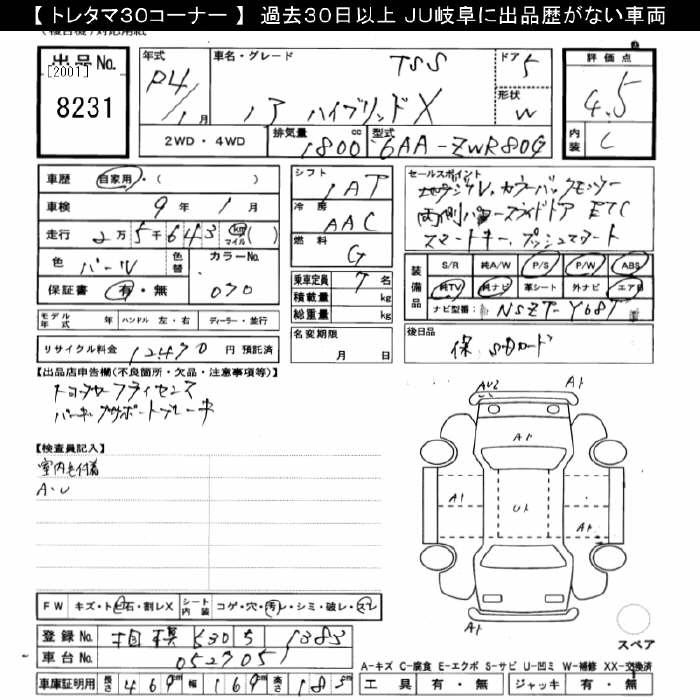 【トレタマ30コーナー】 過去30日以上 JU岐阜に出品歴がない車両
出品No. [2001] 8231
年式 R4/1月
車名・グレード TSS
ノア ハイブリッド X
ドア 5
形状 W
評価点 4.5
内装 C
2WD・4WD 排気量 1800 cc 型式 6AA-ZWR80G
車歴 自家用・( )
車検 9年1月
走行 2万5千643 km マイル ( )
色 パール 色替 カラーNo. 070
保証書 有・無
シフト 1AT
冷房 AAC
燃料 G
乗車定員 7名
積載量 kg
総重量 kg
名変期限 月 日
セールスポイント
両側パワースライドドア ETC
スマートキー、プッシュスタート
装備品 S/R 純A/W P/S P/W ABS
純TV 純ナビ 革シート 外ナビ エアB
ナビ型番: NSZT-Y68T
モデル年式 年 ハンドル 左・右 ディーラー・並行
リサイクル料金 12470 円 預託済
後日品
保 SDカード
【出品店申告欄(不良箇所・欠品・注意事項等)】
【検査員記入】
室内毛付着
A・U
AU2 A1
A1
A1 U1 A1
A1
FW キズ・ト石・割レX シート内装 コゲ・穴・汚レ・シミ・破レ・スレ
登録No. 相模 530 ち 1383
車台No. 0527051
車庫証明用 長さ 469cm 幅 169cm 高さ 183cm
スペア
A-キズ C-腐食 E-エクボ S-サビ U-凹ミ W-補修 XX-交換済
工具 有・無 ジャッキ 有・無